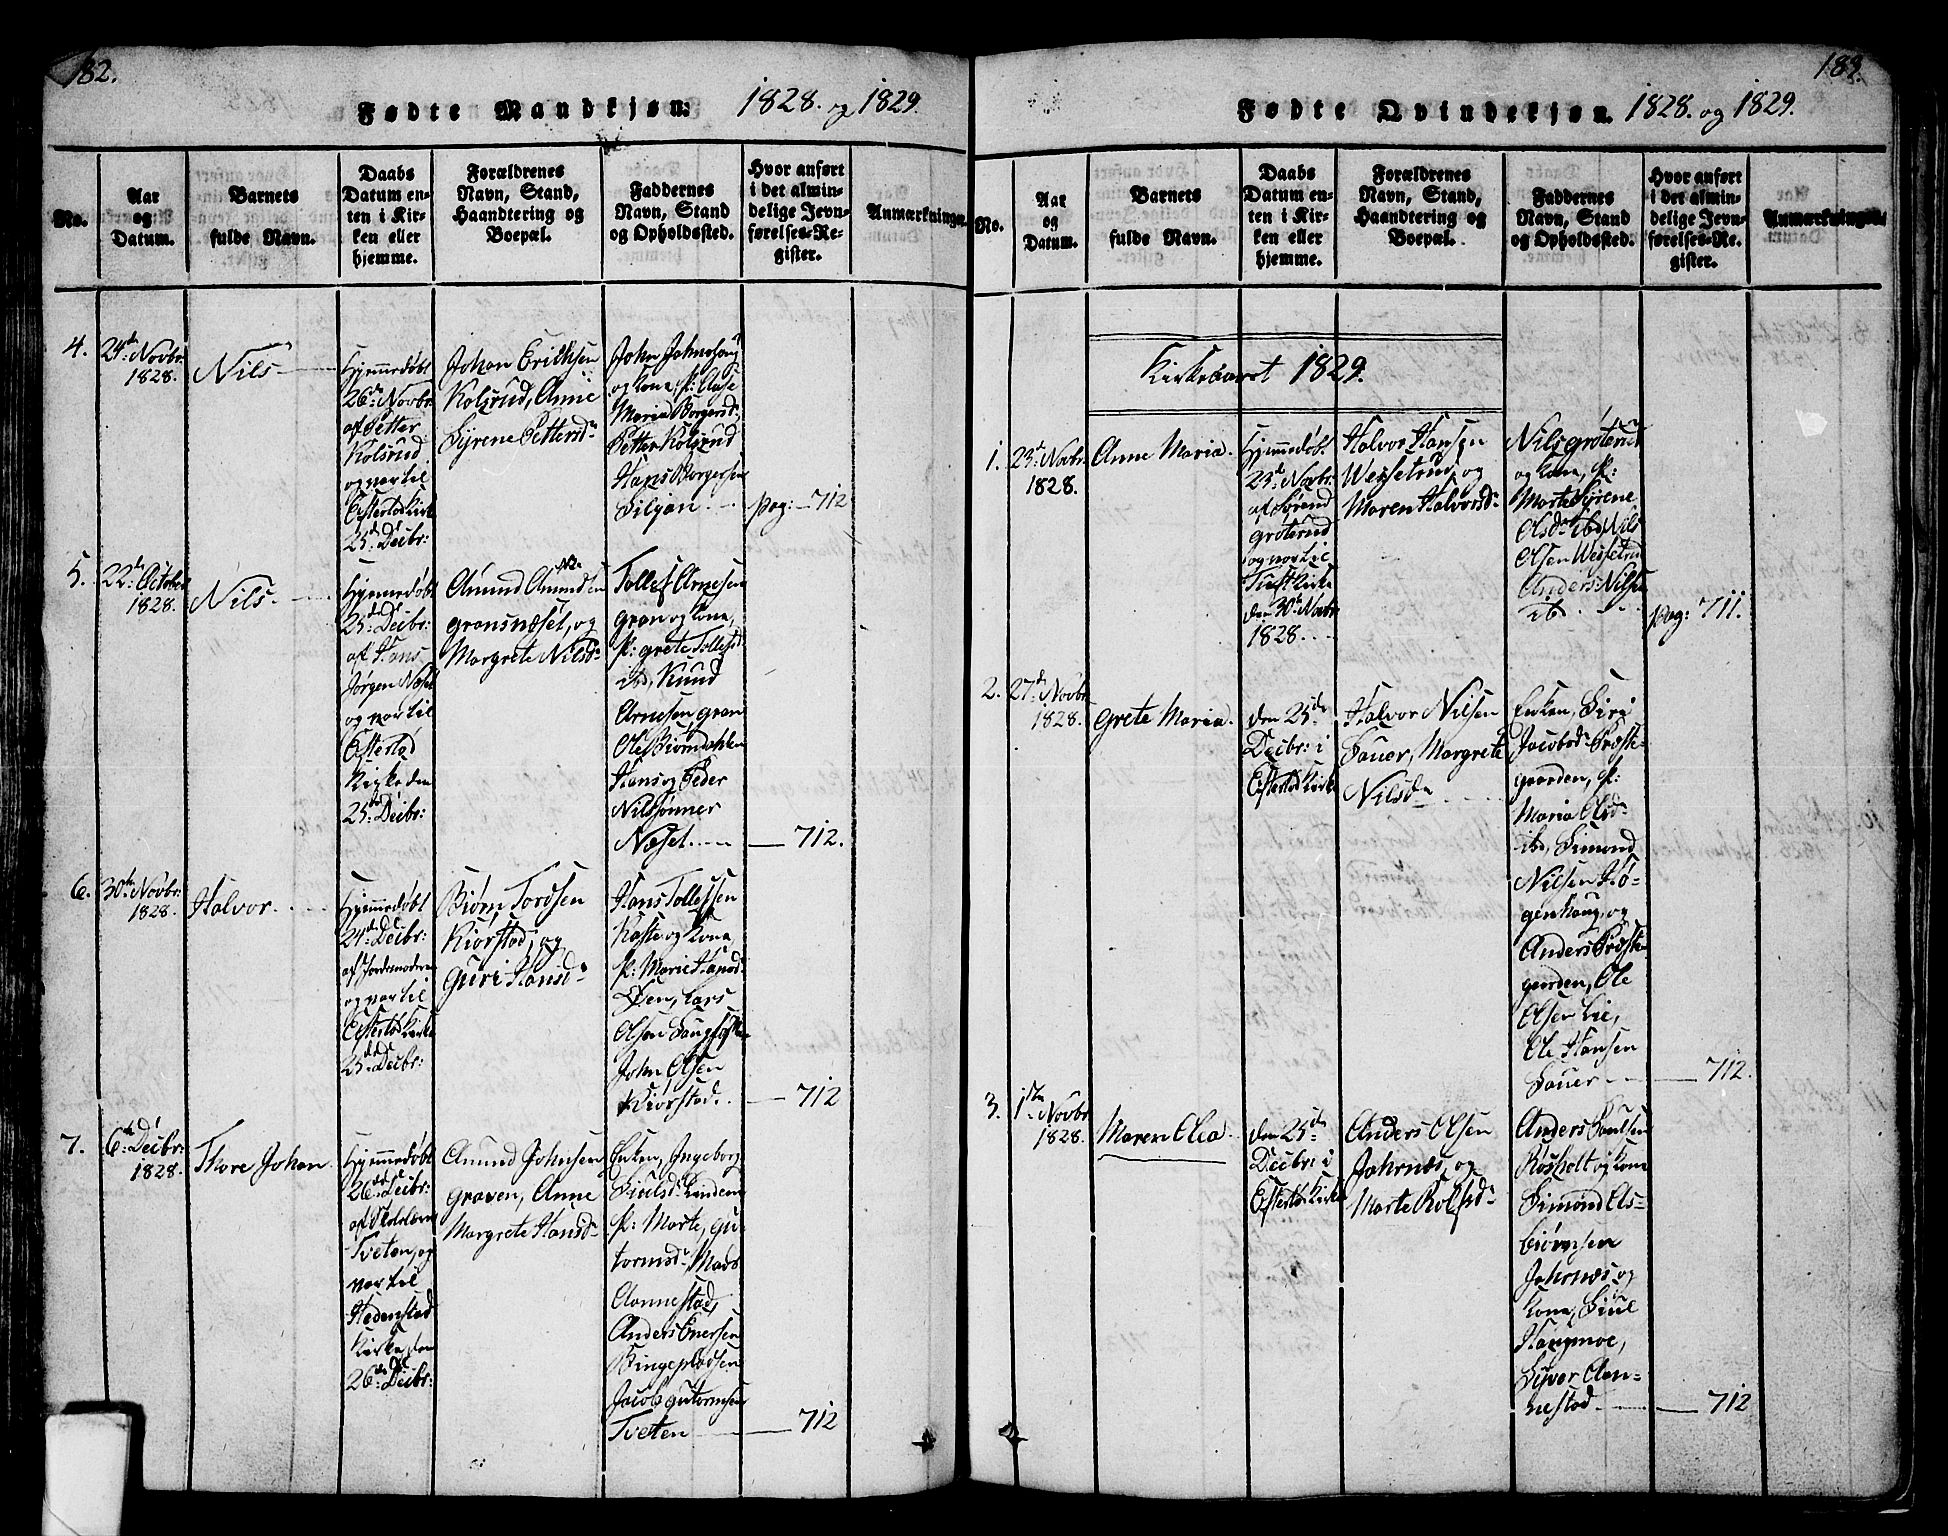 182.
Fødte Mandkjøn. 1828. og 1829.
No.
Aar
og
Datum.
Barnets
fulde Navn.
Daabs
Datum en-
ten i Kir-
ken eller
hjemme.
Forældrenes
Navn, Stand,
Haandtering og
Boepæl.
Faddernes
Navn, Stand
og Opholdssted.
Hvor anført
i det almin-
delige Jevn-
førelses-Re-
gister.
Anmærkninger.
4.
24de Novbr:
1828.
Nils
Hjemmedøbt
26de Novbr:
af Petter
Kolsrud
og var til
Efterlød Kirke
25de Decbr:
Johan Erichsen
Kolsrud, Anne
Syrene Pettersdr
John Johnshoug
og Kona, P: Aase
Maria Borgersdr
Petter Kolsrud
Hans Borgersen
Siljan
pag: 712
5.
22de October
1828.
Nils
Hjemmedøbt
25de Decbr:
af Hans
Jørgen Næset
og var til
Efterlød
Kirke den
25de Decbr:
Amund Amundsen
Gransnæset, og
Margrete Nilsdr
Tollef Arnesen
Gran og Kona,
P: Grete Tollefsdr
ibd, Knud
Arnesen Gran
Ole Biørndahlen
Hans og Peder
Nilssønner
Næset
712.
6.
30te Novbr:
1828.
Halvor
Hjemmedøbt
24de Decbr:
af Jordemoderen
og var til
Efterlød Kirke
25de Decbr:
Biørn Tordsen
Kiørstad, og
Guri Hansdr
Hans Tollefsen
Kaste og Kona,
P: Marie Hansdr
Lars
Olsen
John Olsen
Kiørstad
712
7.
6te Decbr:
1828.
Thore Johan
Hjemmedøbt
26de Decbr:
af Skolelærer
Tveten, og
var til
Hedenstad
Kirke, den
26de Decbr:
Amund Johnsen
Graven, Anne
Margrete Hansdr
Enken, Ingeborg
P: Marte, Gu-
tormsdr Mads
Aannestad,
Anders Enersen
Ringepladsen
Jacob Gutormsen
Tveten
712
183.
Fødte Qvindekjøn. 1828. og 1829.
No.
Aar
og
Datum.
Barnets
fulde Navn.
Daabs
Datum en-
ten i Kir-
ken eller
hjemme.
Forældrenes
Navn, Stand,
Haandtering og
Boepæl.
Faddernes
Navn, Stand
og Opholdssted.
Hvor anført
i det almin-
delige Jevn-
førelses-Re-
gister.
Anmærkninger.
Kirkeaaret 1829.
1.
23de Novbr:
1828.
Anne Maria
Hjemmedøbt
23de Novbr:
af Sørend
Grøterud
og var til
Tuft Kirke
den 30te Novbr
1828.
Halvor Hansen
Wessetrud, og
Maren Halvorsdr
Nils Grøterud
og Kona, P:
Marte Syrene
Olsdr ibd, Nils
Olsen Wessetrud
Anders Nilsen
ib
pag: 711.
2.
27de Novbr
1828.
Grete Maria
den 25de
Decbr: i
Efterlød Kirke
Halvor Nilsen
Sauer, Margrete
Nilsdr
Enken, Siri
Jacobsdr Præste-
gaarden, P:
Maria Olsdr
ibd, Simond
Nilsen Hø-
genhoug, og
Anders Præste-
gaarden, Ole
Olsen Lie,
Ole Hansen
Sauer
712.
3.
1ste Novbr
1828.
Maren Olea
den 25de
Decbr: i
Efterlød Kirke
Anders Olsen
Jahrnæs, og
Marte Rolfsdr
Anders Paulsen
Rosholt og Kona
Simond Els-
biørnsen
Jahrnæs og
Kona, Siul
Haugmoe,
Syver Aan-
nestad
712